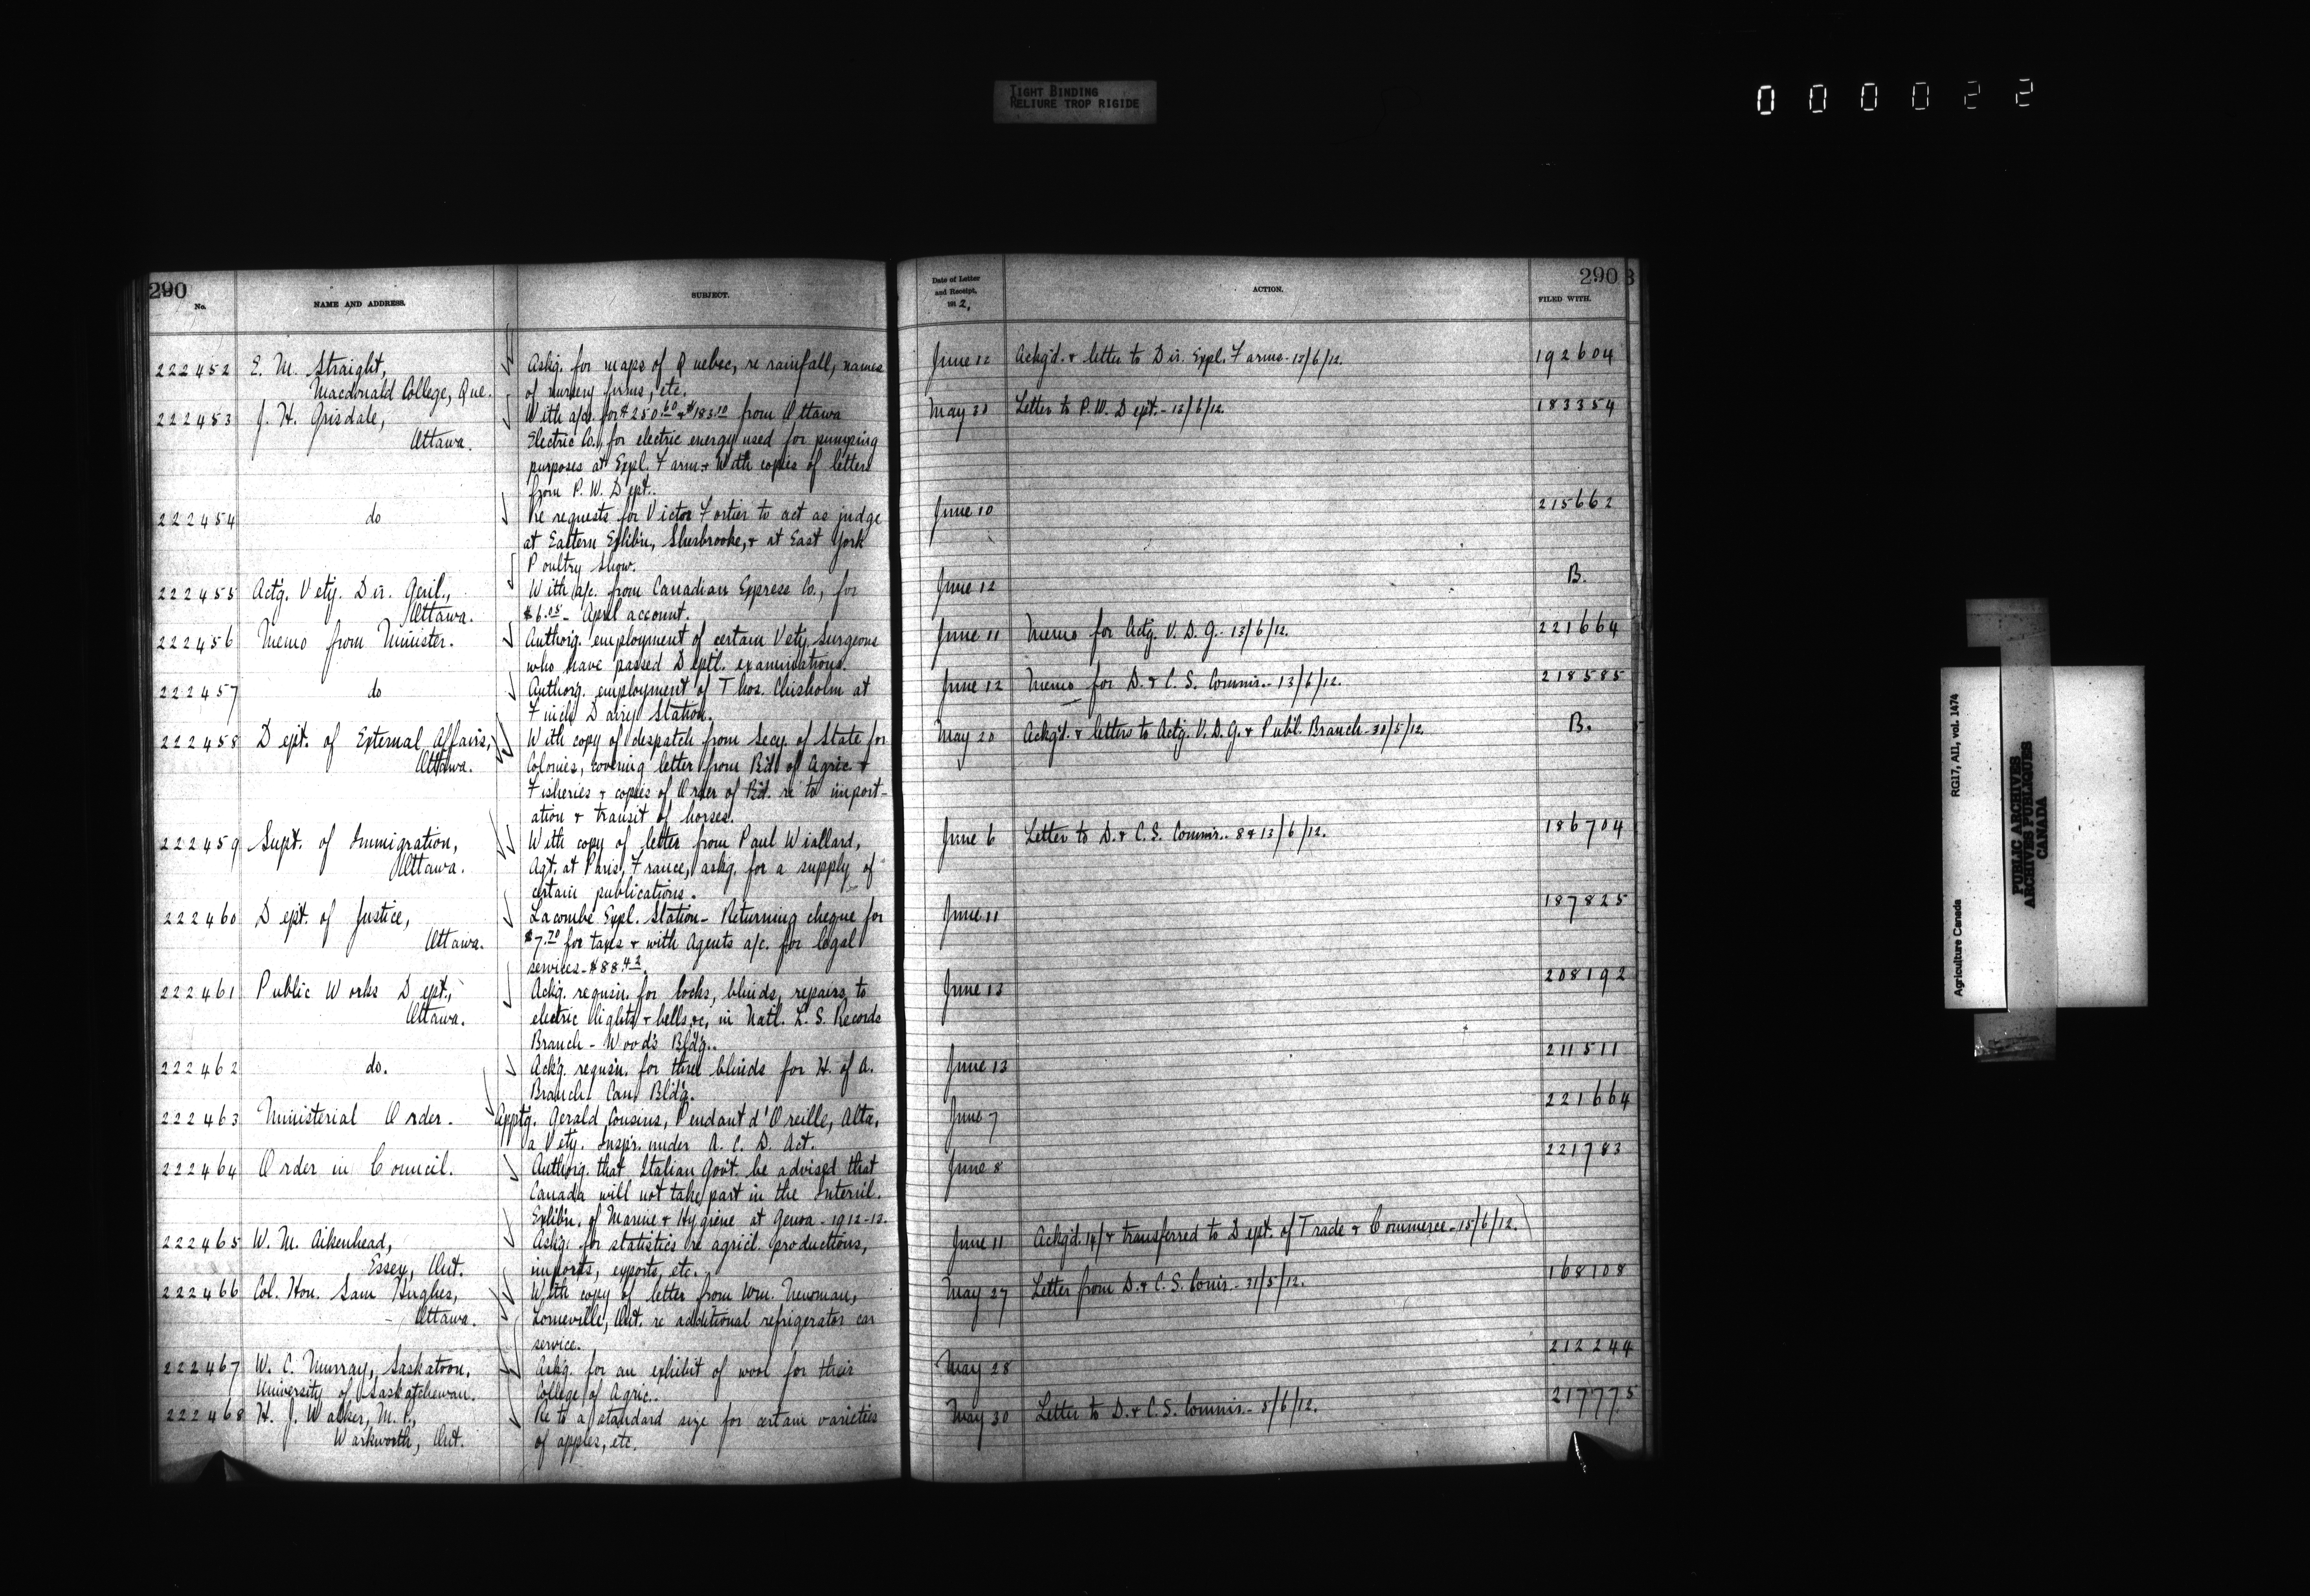 TIGHT BINDING
RELIURE TROP RIGIDE
000022
290
No.
NAME AND ADDRESS.
SUBJECT.
222452 E. M. Straight, Askg. for maps of Quebec, re rainfall, names
Macdonald College, Que. of nursery firms, etc.
222453 J. H. Grisdale, With a/cs. for $250.60 & $183.10 from Ottawa
Ottawa. Electric Co., for electric energy used for pumping
purposes at Expl. Farm & With copies of letters
from P. W. Dept..
222454 do Re requests for Victor Fortier to act as judge
at Eastern Exhib'n, Sherbrooke, & at East York
Poultry Show.
222455 Act'g. Vety. Dir. Genl., With a/c. from Canadian Express Co., for
Ottawa. $6.05 - April account.
222456 Memo from Minister. Authorig. employment of certain Vety. Surgeons
who have passed Deptl. examinations.
222457 do Authorg. employment of Thos. Chisholm at
Finch Dairy Station.
222458 Dept. of External Affairs, With copy of despatch from Secy. of State for
Ottawa. Colonies, covering letter from Bd. of Agric. &
Fisheries & copies of Order of Bd. re to import-
ation & transit of horses.
222459 Supt. of Immigration, With copy of letter from Paul Wiallard,
Ottawa. Agt. at Paris, France, askg. for a supply of
certain publications.
222460 Dept. of Justice, Lacombe Expl. Station - Returning cheque for
Ottawa. $7.70 for taxes & with Agents a/c. for legal
services - $88.42.
222461 Public Works Dept., Ackg. requisn. for locks, blinds, repairs to
Ottawa. electric lights & bells, &c, in Natl. L. S. Records
Branch - Wood's Bld'g..
222462 do. Ack'g. requisn. for three blinds for H. of A.
Branch. Can. Bld'g.
222463 Ministerial Order. Apptg. Gerald Cousins, Pendant d'Oreille, Alta,
a Vety. Inspr. under A. C. D. Act.
222464 Order in Council. Authorg. that Italian Gov't. be advised that
Canada will not take part in the Internl.
Exhib'n. of Marine & Hygiene at Genoa - 1912-13.
222465 W. M. Aikenhead, Askg. for statistics re agricl. productions,
Essex, Ont. imports, exports, etc.
222466 Col. Hon. Sam Hughes, With copy of letter from Wm. Newman,
Ottawa. Lorneville, Ont. re additional refrigerator car
service.
222467 W. C. Murray, Saskatoon, Askg. for an exhibit of wool for their
University of Saskatchewan. College of Agric..
222468 H. J. Walker, M. P., Re to a standard size for certain varieties
Warkworth, Ont. of apples, etc.
290
Date of Letter
and Receipt,
191 2,
ACTION.
FILED WITH.
June 12 Ackg'd. & letter to Dir. Expl. Farms - 13/6/12. 192604
May 30 Letter to P. W. Dept. - 13/6/12. 183354
June 10 215662
June 12 B.
June 11 Memo for Actg. V. D. G. - 13/6/12. 221664
June 12 Memo for D. & C. S. Commr. - 13/6/12. 218585
May 20 Ackg'd. & letters to Actg. V. D. G. & Publ. Branch - 30/5/12. B.
June 6 Letter to D. & C. S. Commr.. 8 & 13/6/12. 186704
June 11 187825
June 13 208192
June 13 211511
June 7 221664
June 8 221783
June 11 Ackg'd. 14/ & transferred to Dept. of Trade & Commerce - 15/6/12.
May 27 Letter from D. & C. S. Comr. - 31/5/12. 168108
May 28 212244
May 30 Letter to D. & C. S. Commr. - 5/6/12. 217775
Agriculture Canada RG17, A11, vol. 1474
PUBLIC ARCHIVES
ARCHIVES PUBLIQUES
CANADA